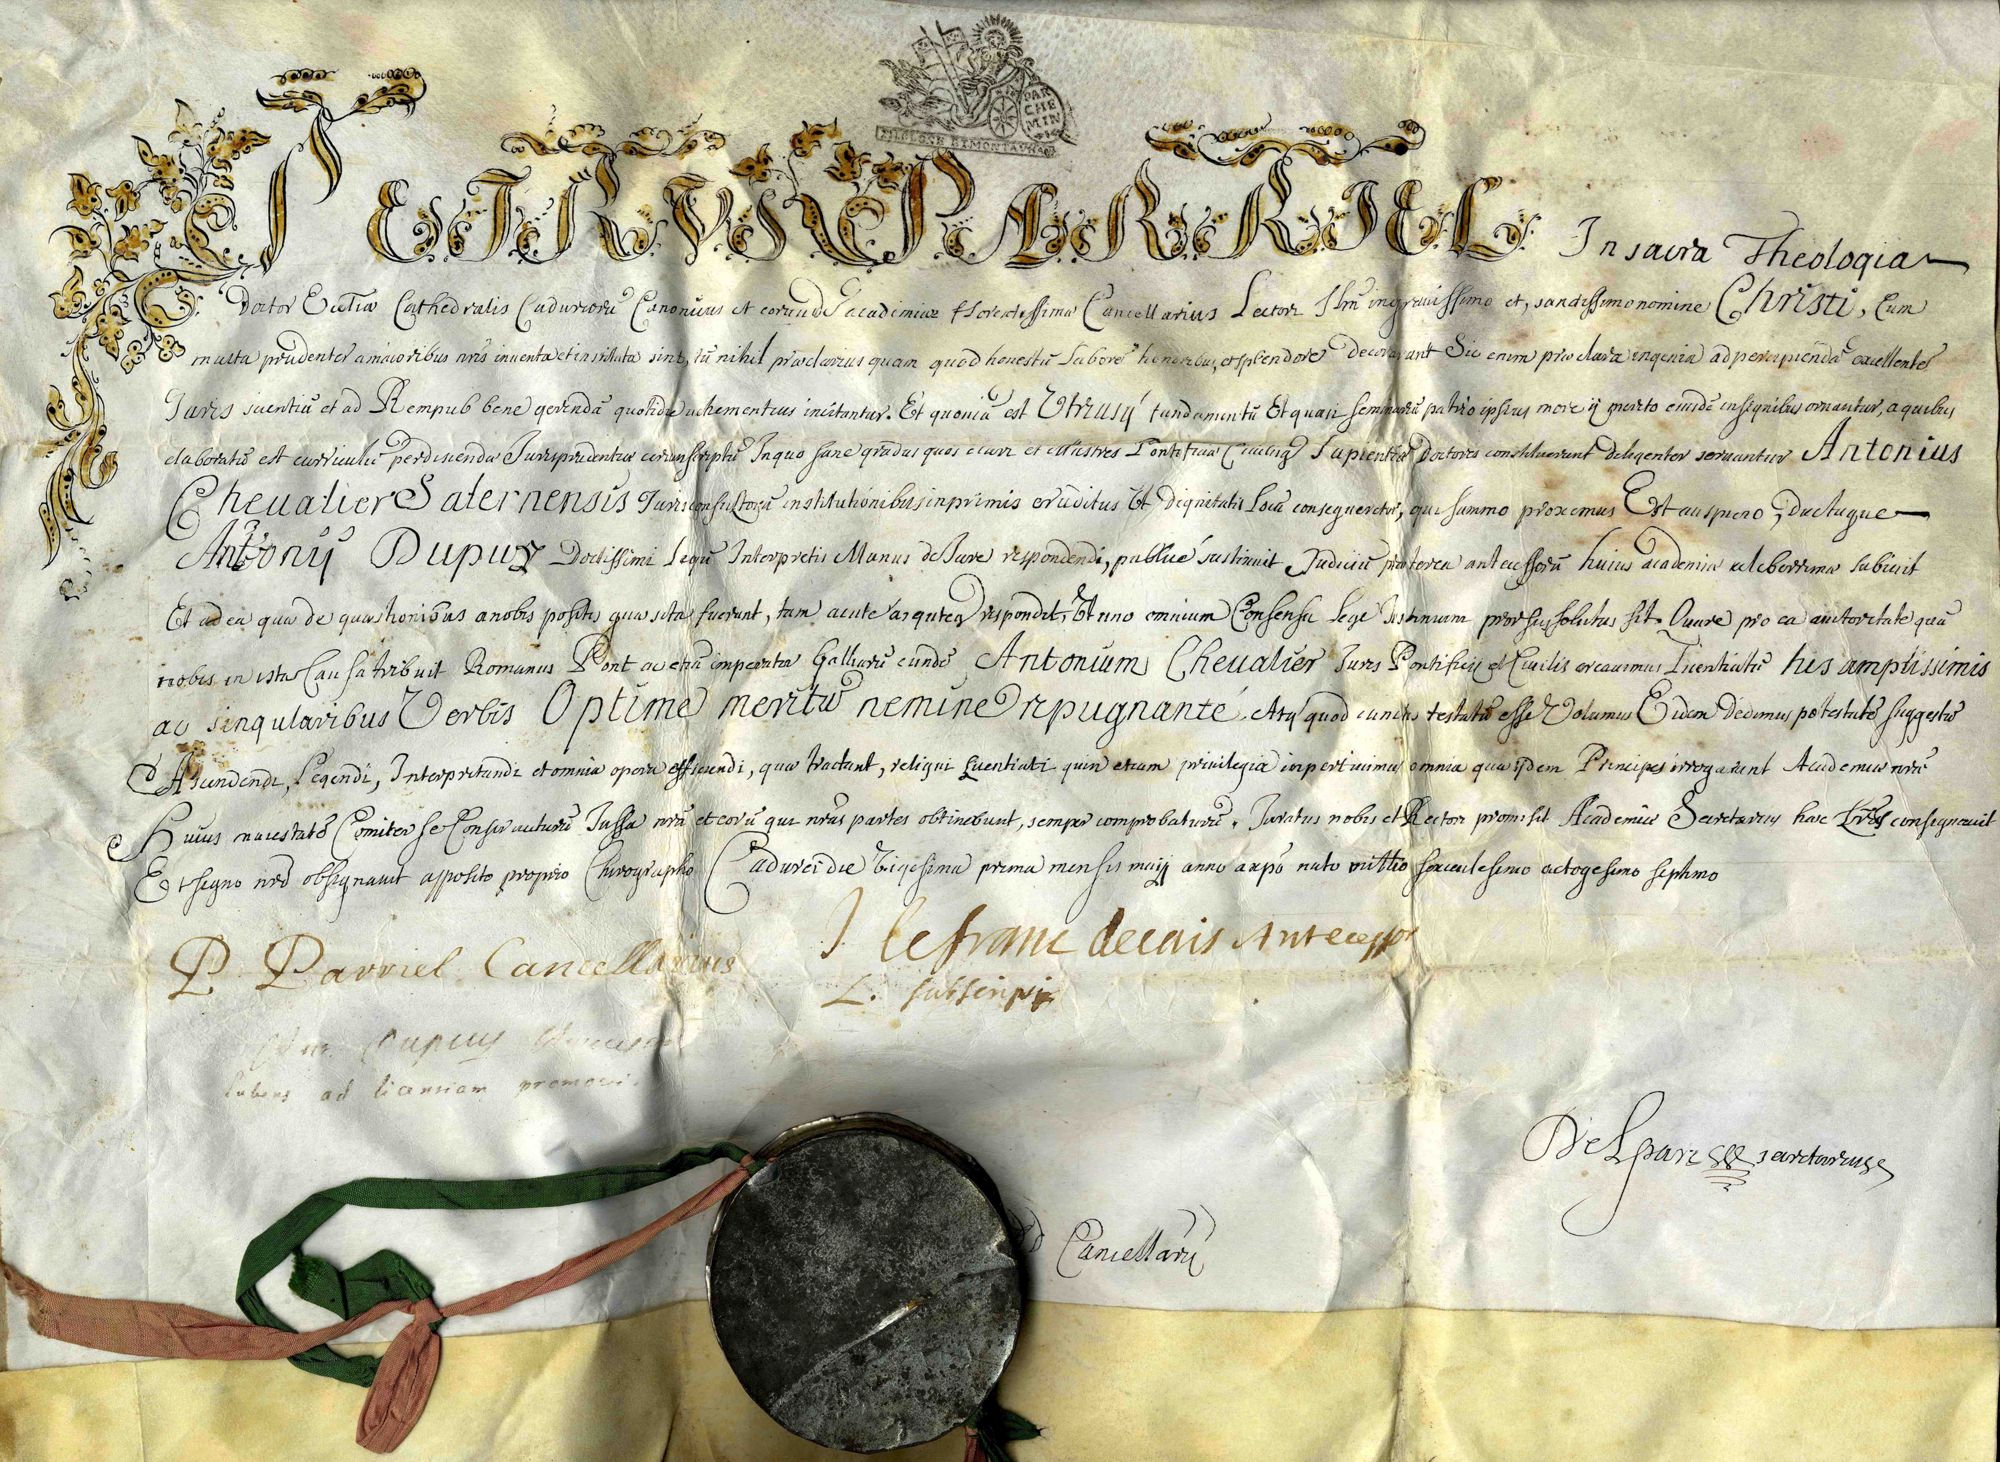 PAR CHE MIN
PETRUS PARRIEL In sacra Theologia
Doctor Ecclīæ Cathedralis Cadurcorū Canonicus et eorundē academiæ florentissimæ Cancellarius Lectori et, sanctissimo nomine Christi, Cum
multa prudenter a maioribus nrīs inventa et instituta sint, tū nihil præclarius quam quod honestū laborē honoribus, et splendore decorarunt Sic enim præclara ingenia ad percipiendā excellentē
Juris scientiū et ad Rempub bene gerendā quotidie vehementius incitantur. Et quoniā est Utriusq fundamentū Et quasi seminariū patrio ipsius more ij merito eiusdē insignibus ornantur, a quibus
elaboratū est curriculū perdiscendæ Jurisprudentiæ circunscriptū In quo sane gradus quos clari et illustres Pontificiæ Civilisq Sapientiæ doctores constituerunt diligenter servantur Antonius
Chevalier Salernensis Jurisconsultorū institutionibus inprimis eruditus Ut Dignitatis Locū consequeretur, qui summo proximus Est auspicio, ductuque
Antonij Dupuy Doctissimi Legū Interpretis Munus de Jure respondendi, publicé sustinuit Judiciū præterea antecessorū huius academiæ celeberrimæ subivit
Et ad ea quæ de quæstionibus a nobis positis quæsita fuerunt, tam acuté arguteq respondit, Ut uno omnium Consensu Lege prorsus solutus sit. Quare pro ea auctoritate quā
nobis in ista Causa tribuit Romanus Pont ac etiā imperator Galliarū eundē Antonium Chevalier Juris Pontificij et Civilis creavimus Licentiatū his amplissimis
ac singularibus Verbis Optimé meritū nemine repugnanté. Atq quod cunctis testatū esse Volumus Eidem Dedimus potestatē suggestū
Ascendendi, Legendi, Interpretandi et omnia opera efficiendi, quæ tractant, reliqui Licentiati quin etiam privilegia impertivimus omnia quæ ijdem Principes irrogarunt Academiæ nrǣ
Huius maiestatē Comiter se Conservaturū Jussa nrā et eorū qui nrās partes obtinebunt, semper comprobaturū. Juratus nobis et Rectori promisit Academiæ Secretarius hasc Lrās consignavit
Et signo nrō obsignavit apposito proprio Chirographo Cadurci die vigesima prima mensis maij anno a xpō nato millio sexcentesimo octogesimo septimo
P. Parriel Cancellarius
J. Lefranc decais Antecessor
L. subscripsi
Dupuy
lubens ad licentiam promovi.
Delpari secretarius
Cancellarij